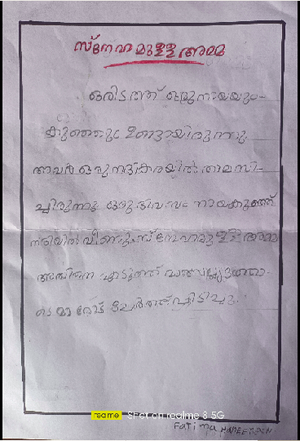 സ്നേഹമുള്ള അമ്മ
ഒരിടത്ത് ഒരു നായയും
കുഞ്ഞും ഉണ്ടായിരുന്നു
അവർ ഒരു നദീകരയിൽ താമസി-
ച്ചിരുന്നു ഒരു ദിവസം നായകുഞ്ഞ്
നദിയിൽ വീണു സ്നേഹമുള്ള അമ്മ
അതിനെ എടുത്ത്
മാറോട് ചേർത്ത് പിടിച്ചു.
realme Shot on realme 8 5G
Fatima